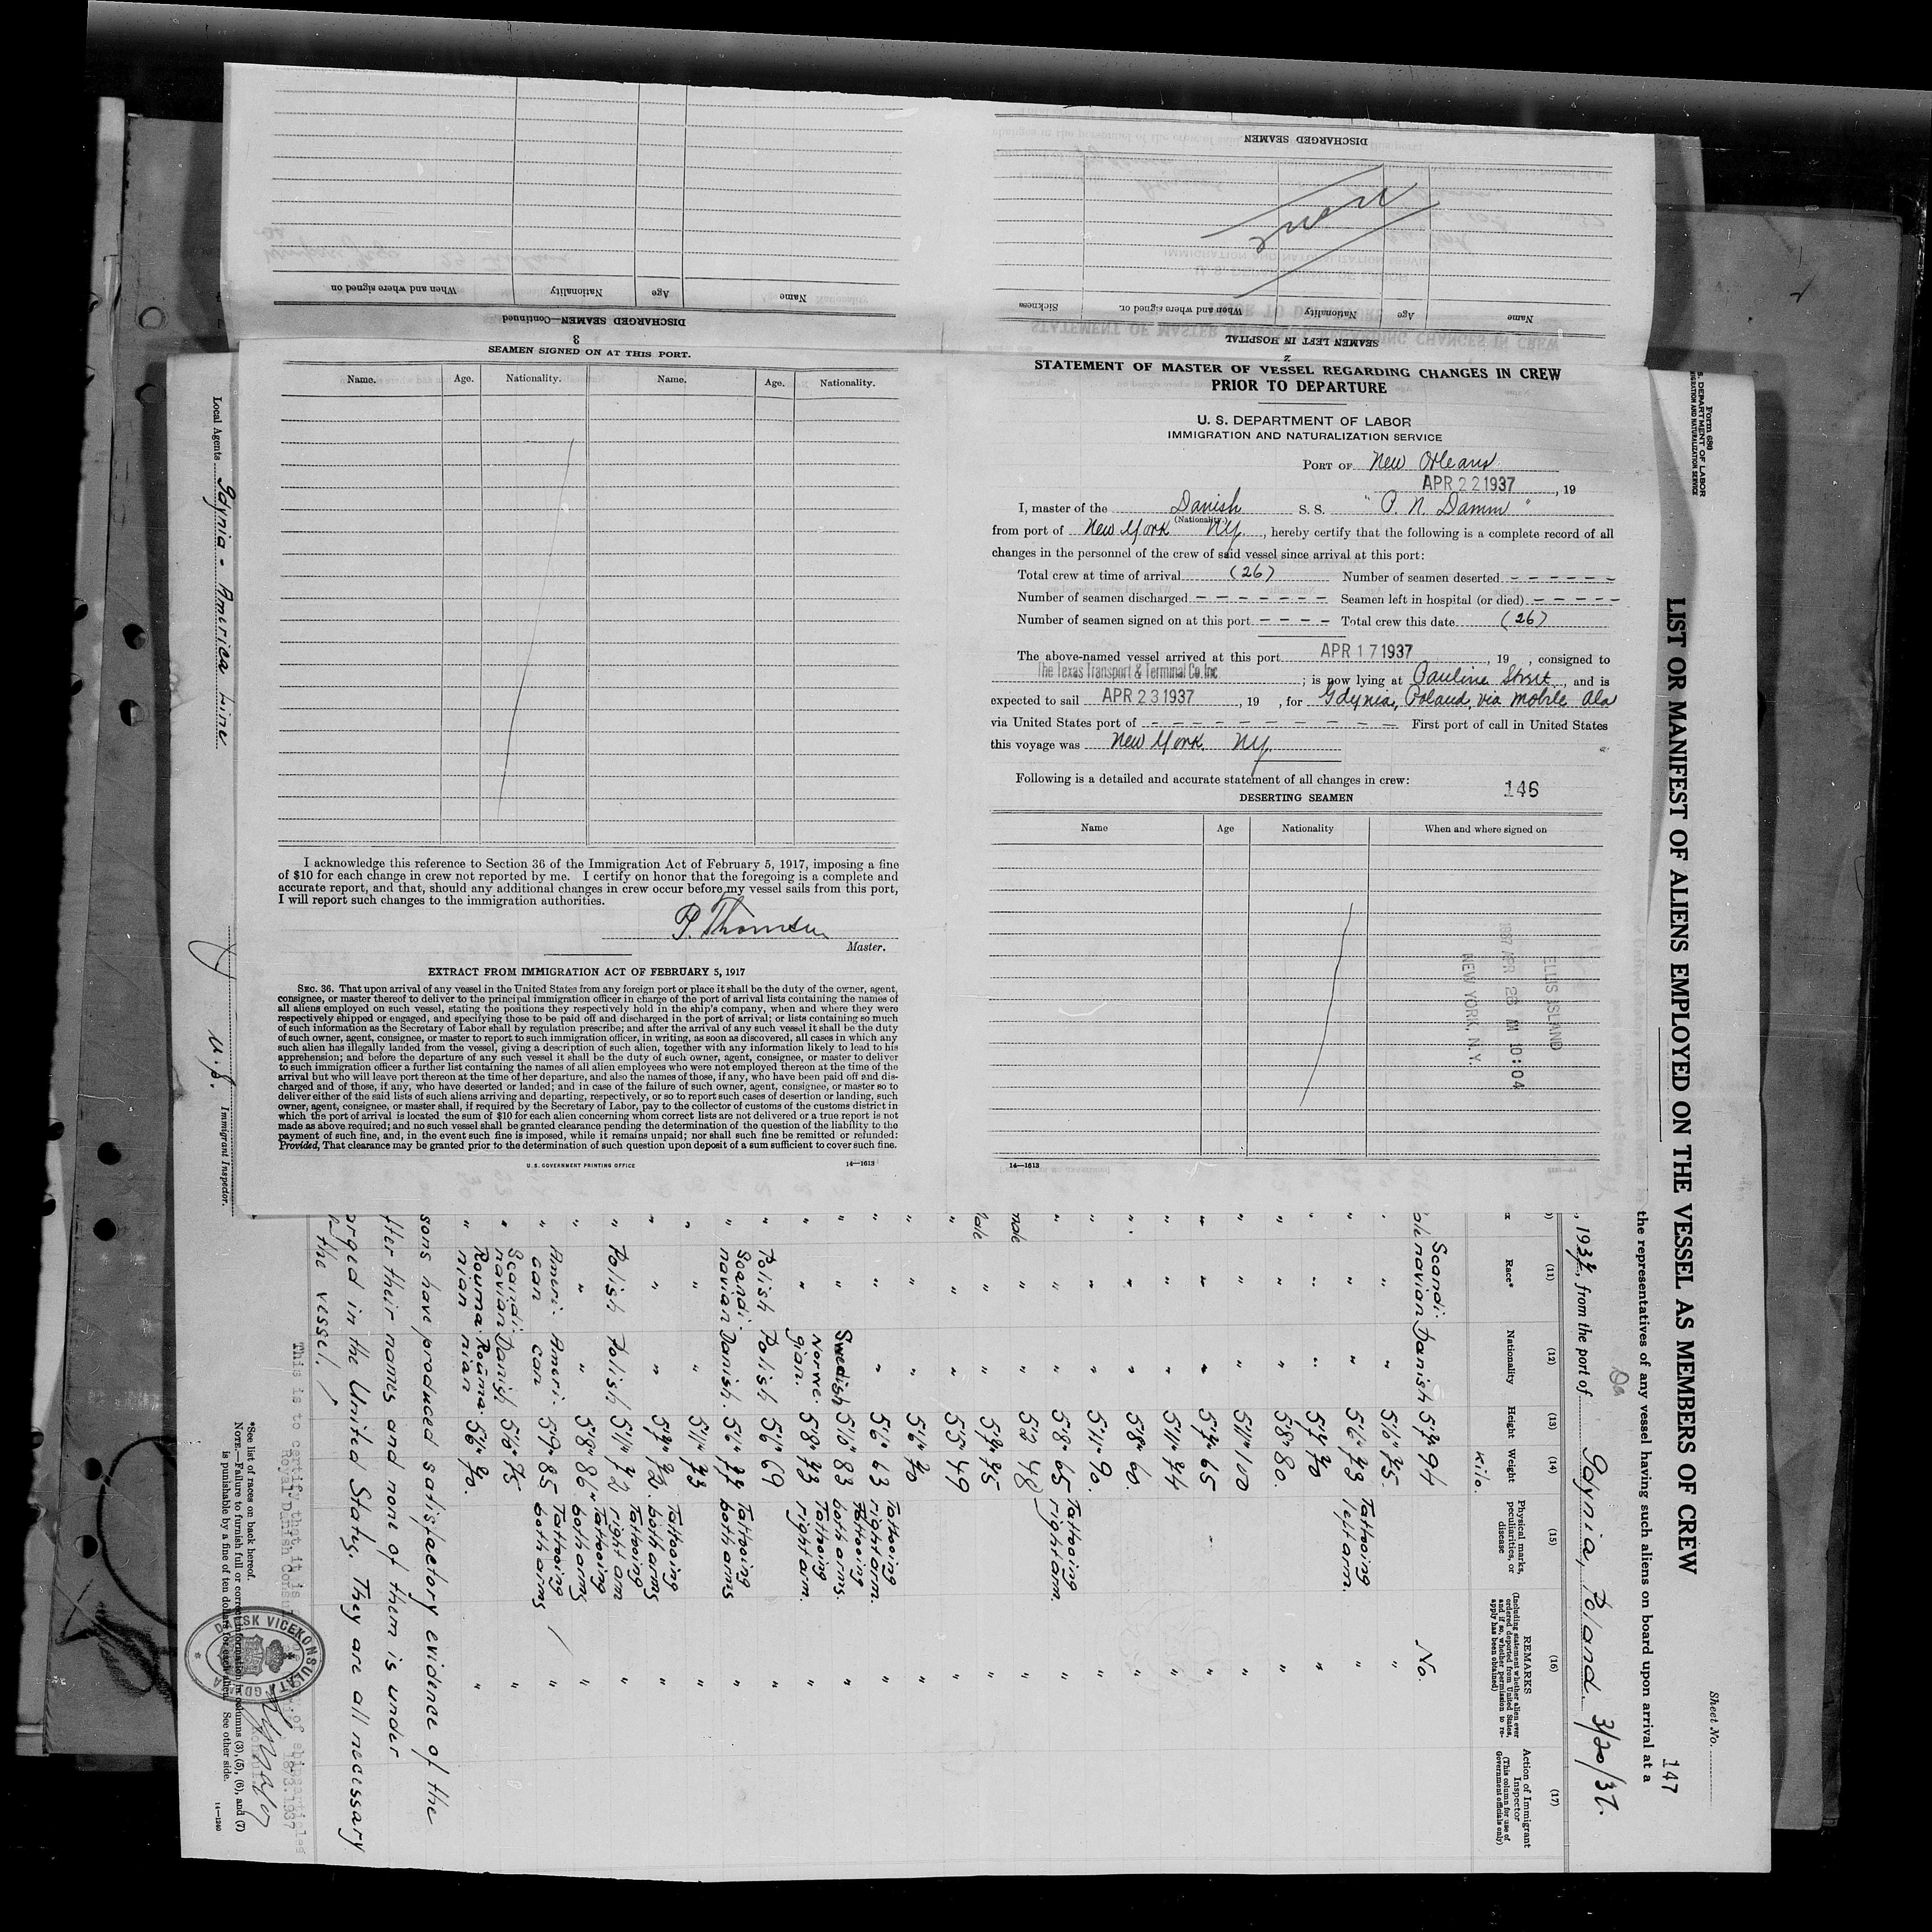 DISCHARGED SEAMEN
None
Name Age Nationality When and where signed on Sickness
SEAMEN LEFT IN HOSPITAL
2
Name Age Nationality When and where signed on
DISCHARGED SEAMEN—Continued
3
SEAMEN SIGNED ON AT THIS PORT.
Name. Age. Nationality. Name. Age. Nationality.
I acknowledge this reference to Section 36 of the Immigration Act of February 5, 1917, imposing a fine
of $10 for each change in crew not reported by me. I certify on honor that the foregoing is a complete and
accurate report, and that, should any additional changes in crew occur before my vessel sails from this port,
I will report such changes to the immigration authorities.
P. Thomsen
Master.
EXTRACT FROM IMMIGRATION ACT OF FEBRUARY 5, 1917
SEC. 36. That upon arrival of any vessel in the United States from any foreign port or place it shall be the duty of the owner, agent,
consignee, or master thereof to deliver to the principal immigration officer in charge of the port of arrival lists containing the names of
all aliens employed on such vessel, stating the positions they respectively hold in the ship's company, when and where they were
respectively shipped or engaged, and specifying those to be paid off and discharged in the port of arrival; or lists containing so much
of such information as the Secretary of Labor shall by regulation prescribe; and after the arrival of any such vessel it shall be the duty
of such owner, agent, consignee, or master to report to such immigration officer, in writing, as soon as discovered, all cases in which any
such alien has illegally landed from the vessel, giving a description of such alien, together with any information likely to lead to his
apprehension; and before the departure of any such vessel it shall be the duty of such owner, agent, consignee, or master to deliver
to such immigration officer a further list containing the names of all alien employees who were not employed thereon at the time of the
arrival but who will leave port thereon at the time of her departure, and also the names of those, if any, who have been paid off and dis-
charged and of those, if any, who have deserted or landed; and in case of the failure of such owner, agent, consignee, or master so to
deliver either of the said lists of such aliens arriving and departing, respectively, or so to report such cases of desertion or landing, such
owner, agent, consignee, or master shall, if required by the Secretary of Labor, pay to the collector of customs of the customs district in
which the port of arrival is located the sum of $10 for each alien concerning whom correct lists are not delivered or a true report is not
made as above required; and no such vessel shall be granted clearance pending the determination of the question of the liability to the
payment of such fine, and, in the event such fine is imposed, while it remains unpaid; nor shall such fine be remitted or refunded:
Provided, That clearance may be granted prior to the determination of such question upon deposit of a sum sufficient to cover such fine.
U. S. GOVERNMENT PRINTING OFFICE 14—1613
STATEMENT OF MASTER OF VESSEL REGARDING CHANGES IN CREW
PRIOR TO DEPARTURE
U. S. DEPARTMENT OF LABOR
IMMIGRATION AND NATURALIZATION SERVICE
PORT OF New Orleans
APR 22 1937, 19
I, master of the Danish S. S. "P. N. Damm"
(Nationality)
from port of New York NY, hereby certify that the following is a complete record of all
changes in the personnel of the crew of said vessel since arrival at this port:
Total crew at time of arrival (26) Number of seamen deserted - - - - - -
Number of seamen discharged - - - - - - - Seamen left in hospital (or died) - - - - -
Number of seamen signed on at this port - - - - Total crew this date (26)
The above-named vessel arrived at this port APR 17 1937, 19 , consigned to
The Texas Transport & Terminal Co. Inc. ; is now lying at Pauline Street, and is
expected to sail APR 23 1937, 19 , for Gdynia, Poland, via Mobile Ala
via United States port of - - - - - - - - - - - First port of call in United States
this voyage was New York. NY
Following is a detailed and accurate statement of all changes in crew:
146
DESERTING SEAMEN
Name Age Nationality When and where signed on
ELLIS ISLAND
1937 APR 26 AM 10:04
NEW YORK, N. Y.
14—1613
Form 680
U. S. DEPARTMENT OF LABOR
IMMIGRATION AND NATURALIZATION SERVICE
Sheet No.
147
LIST OR MANIFEST OF ALIENS EMPLOYED ON THE VESSEL AS MEMBERS OF CREW
the representatives of any vessel having such aliens on board upon arrival at a
, 1937, from the port of Gdynia, Poland. 3/20/37.
(11) (12) (13) (14) (15) (16) (17)
Race* Nationality Height Weight Physical marks, peculiarities, or disease REMARKS (Including statement whether alien ever ordered deported from United States, and if so, whether permission to reapply has been obtained) Action of Immigrant Inspector (This column for use of Government officials only)
Kilo.
Scandinavian Danish 94 No.
" " "
" " Tattooing left arm. "
" " "
" " 80. "
" " 100 "
" " 65 "
" " "
" " 60. "
" " 90. "
" " 65 Tattooing right arm. "
" " 48 "
" " "
" " 49 "
" " "
" " 63 Tattooing right arm. "
" Swedish 83 Tattooing both arms. "
" Norwegian. Tattooing right arm. "
Polish Polish 69 "
Scandinavian Danish. Tattooing both arms "
" " "
" " Tattooing both arms "
Polish Polish Tattooing right arm "
" " 86 Tattooing both arms "
American American 85 Tattooing both arms "
Scandinavian Danish 75 "
Roumanian Roumanian "
sons have produced satisfactory evidence of the
fter their names and none of them is under
arged in the United Stats. They are all necessary
the vessel.
This is to certify that it is of ship articles
Royal Danish Consu 18/3.1937
DANSK VICEKONSULAT GDYNIA
*See list of races on back hereof.
NOTE.—Failure to furnish full or correct information in columns (3), (5), (6), and (7)
is punishable by a fine of ten dollars for each alien. See other side.
14—1240
Local Agents Gdynia - America Line
Immigrant Inspector.